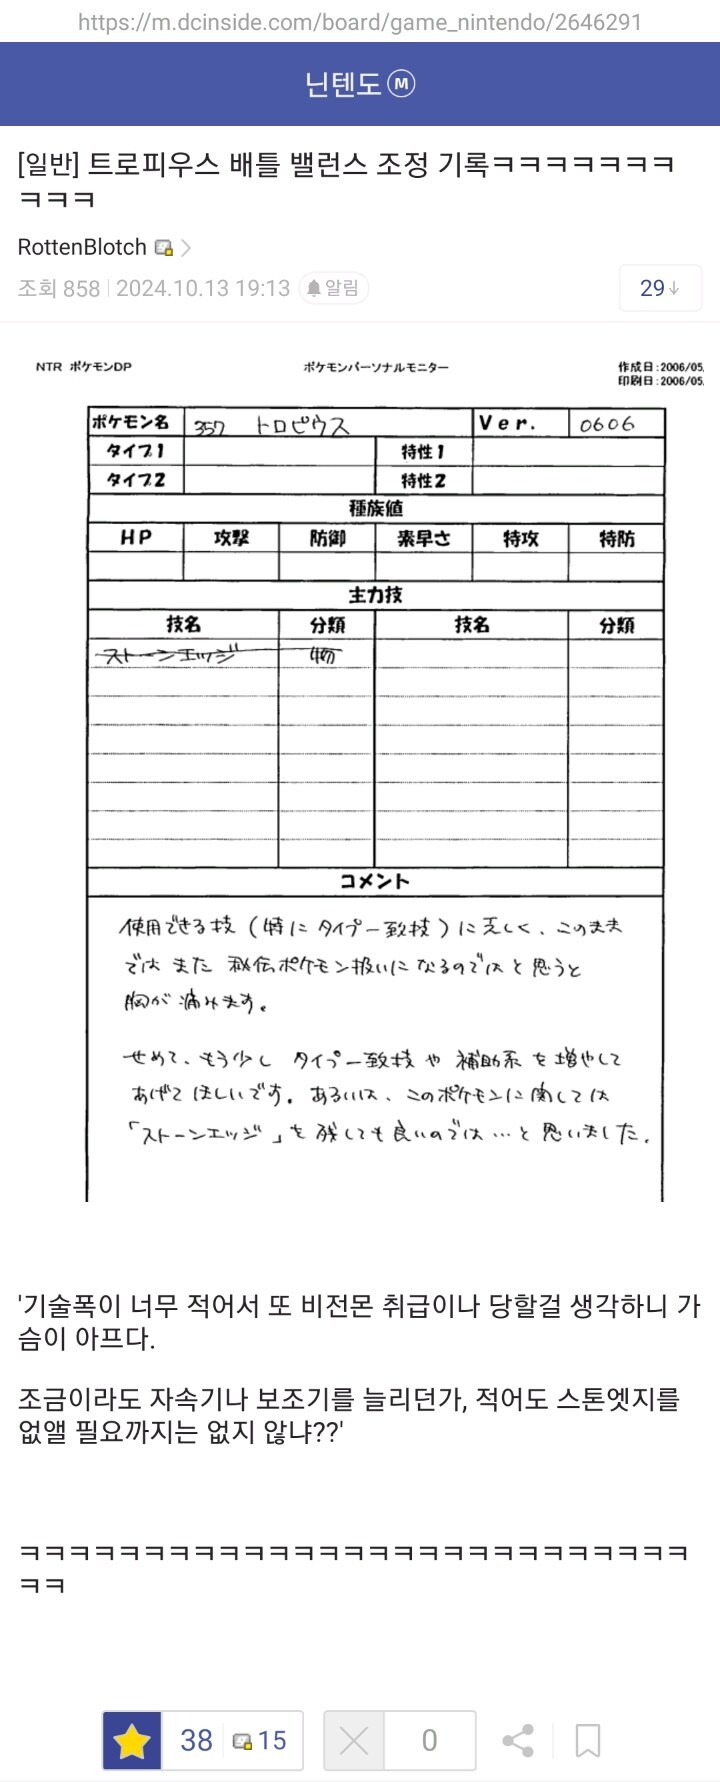 https://m.dcinside.com/board/game_nintendo/2646291
닌텐도 M
[일반] 트로피우스 배틀 밸런스 조정 기록ㅋㅋㅋㅋㅋㅋㅋ
ㅋㅋㅋ
RottenBlotch
조회 858 2024.10.13 19:13 알림
29
NTR ポケモンDP ポケモンパーソナルモニター 作成日:2006/05,
印刷日:2006/05,
ポケモン名 357 トロピウス Ver. 0606
タイプ1 特性1
タイプ2 特性2
種族値
HP 攻撃 防御 素早さ 特攻 特防
主力技
技名 分類 技名 分類
ストーンエッジ 物
コメント
使用できる技(特にタイプ一致技)に乏しく、このまま
では また 秘伝ポケモン扱いになるのではと思うと
胸が痛みます。
せめて、もう少し タイプ一致技や補助系を増やして
あげてほしいです。あるいは、このポケモンに関しては
「ストーンエッジ」を残しても良いのでは…と思いました。
'기술폭이 너무 적어서 또 비전몬 취급이나 당할걸 생각하니 가
슴이 아프다.
조금이라도 자속기나 보조기를 늘리던가, 적어도 스톤엣지를
없앨 필요까지는 없지 않냐??'
ㅋㅋㅋㅋㅋㅋㅋㅋㅋㅋㅋㅋㅋㅋㅋㅋㅋㅋㅋㅋㅋㅋㅋㅋㅋㅋㅋ
ㅋㅋ
38 15 0